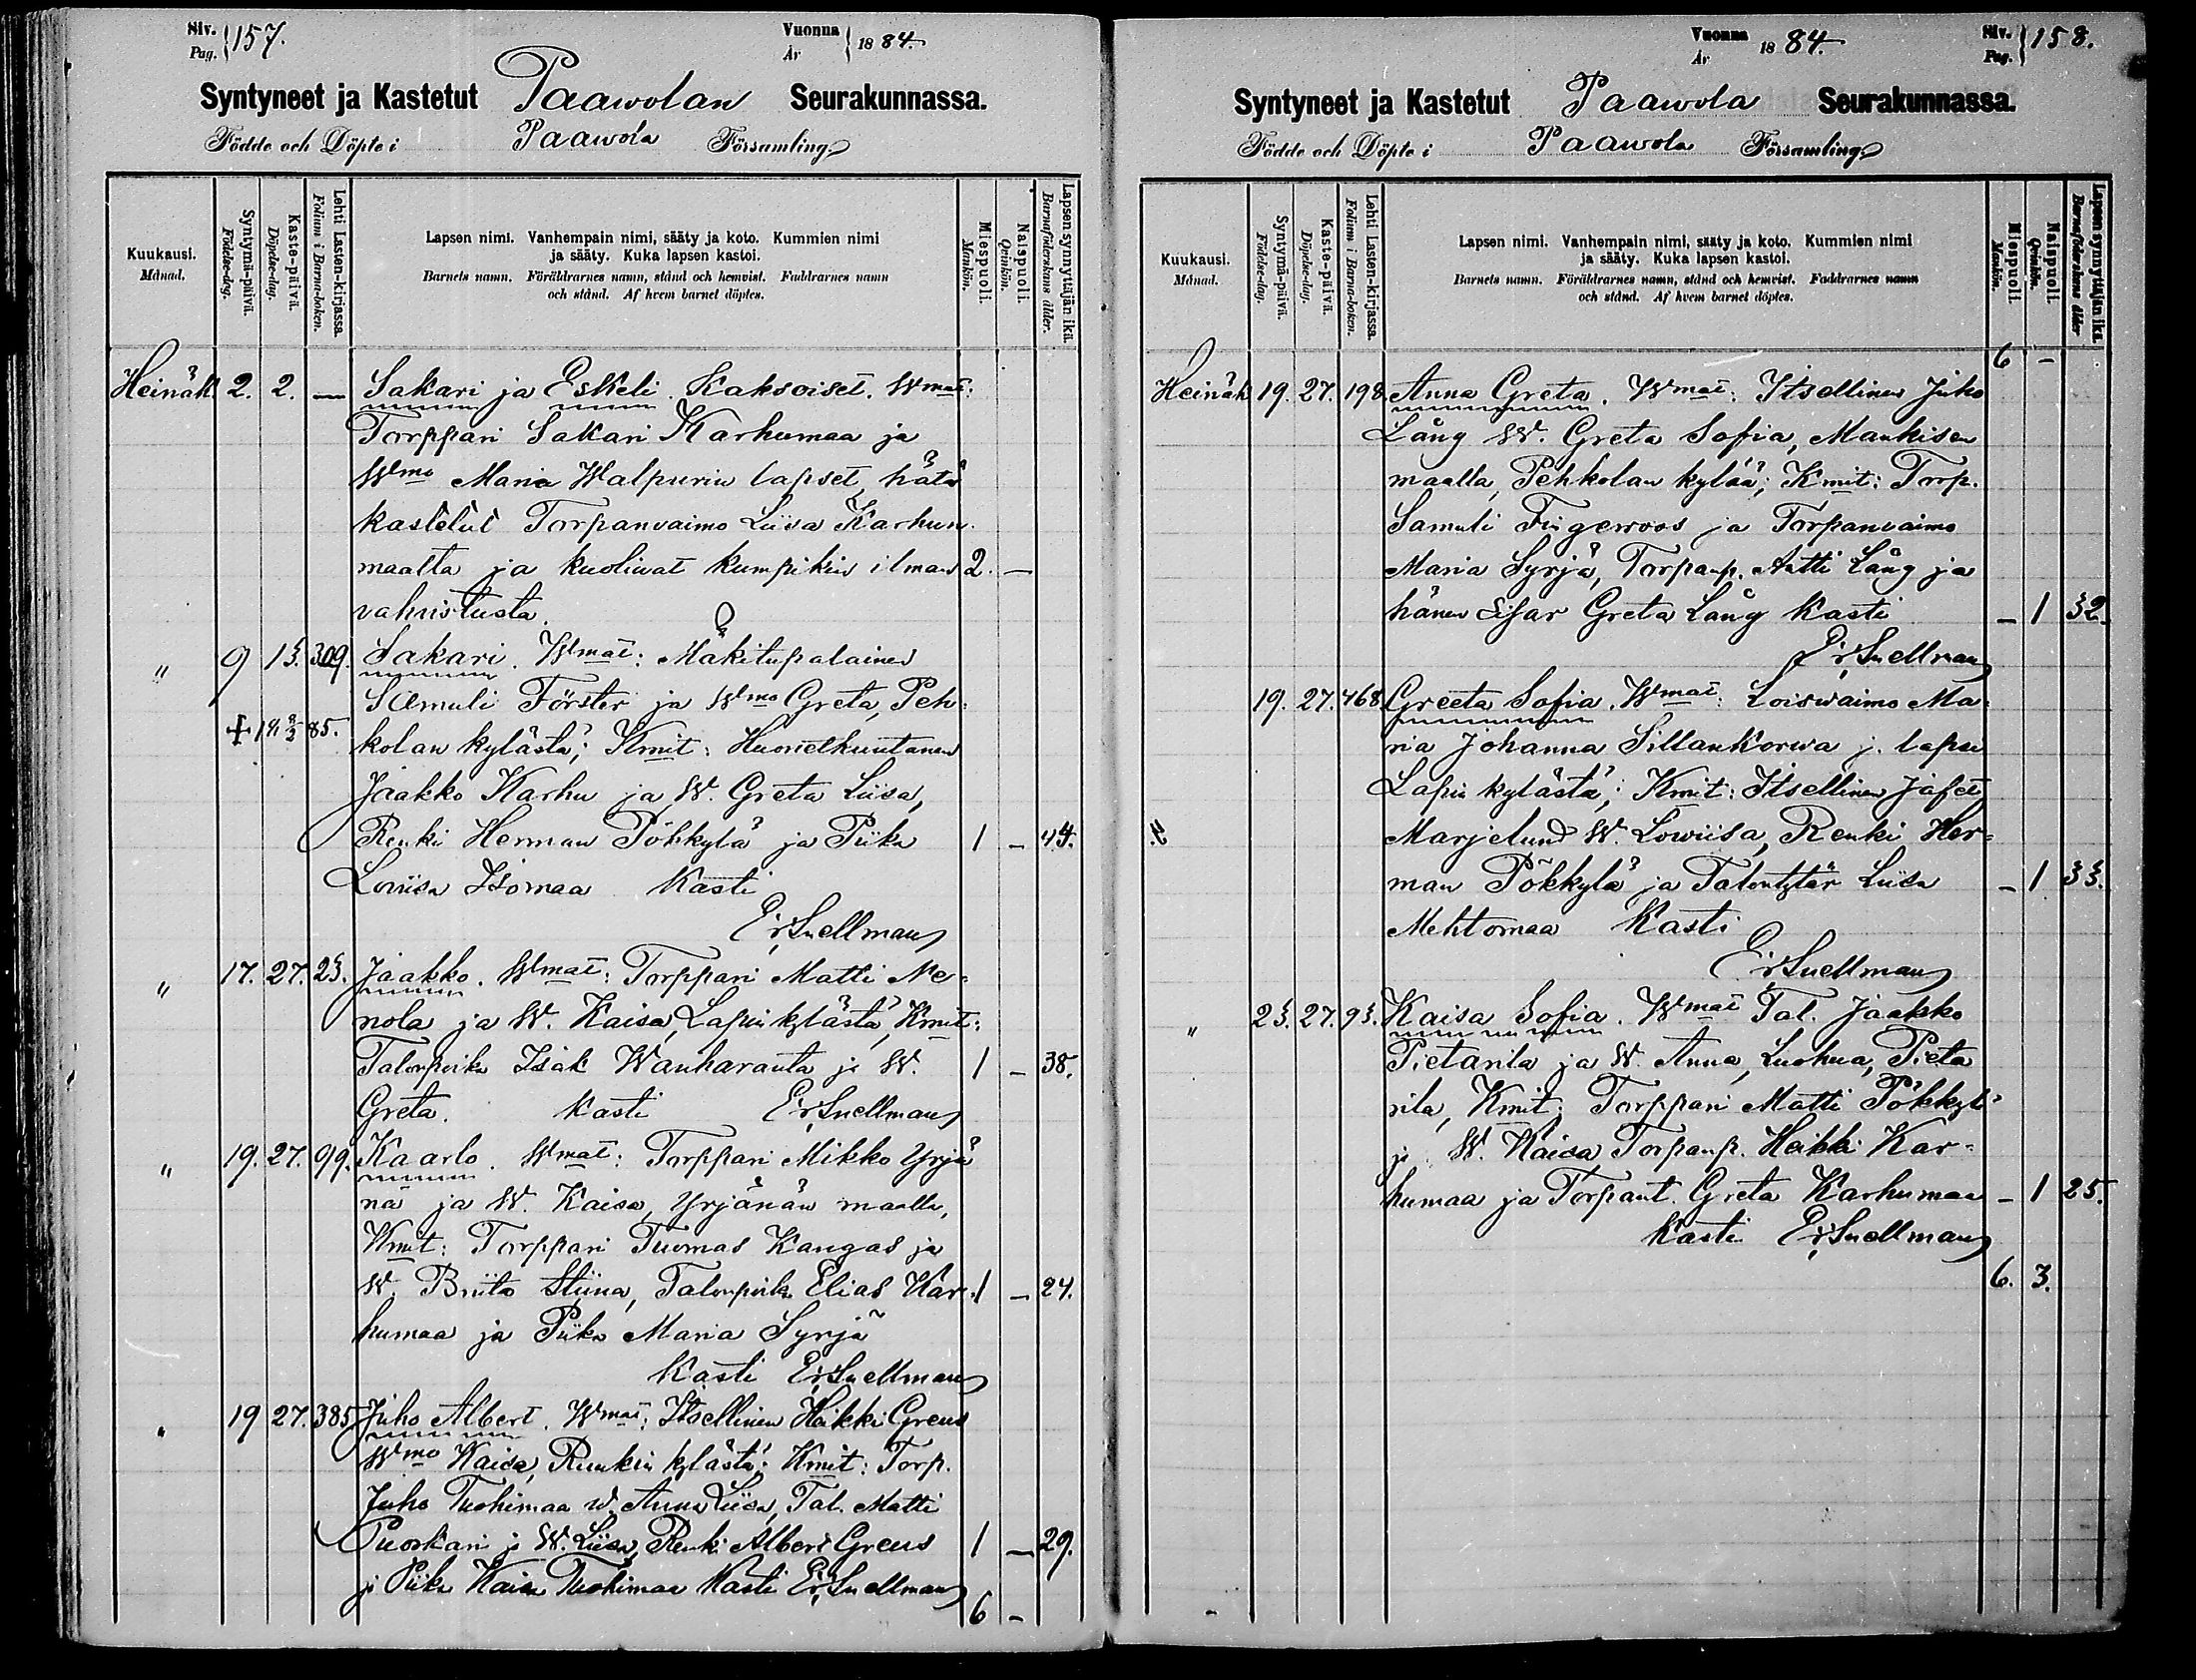 Siv. Pag. 157.
Vuonna År 1884.
Syntyneet ja Kastetut Paawolan Seurakunnassa.
Födde och Döpte i Paawola Församling
Kuukausi. Månad.
Syntymä-päivä. Födelse-dag.
Kaste-päivä. Döpelse-dag.
Lehti Lasten-kirjassa. Folium i Barna-boken.
Lapsen nimi. Vanhempain nimi, sääty ja koto. Kummien nimi
ja sääty. Kuka lapsen kastoi.
Barnets namn. Föräldrarnes namn, stånd och hemvist. Faddrarnes namn
och stånd. Af hvem barnet döptes.
Miespuoli. Mankön.
Naispuoli. Qvinkön.
Lapsensynnyttäjän ikä. Barnaföderskans ålder.
Heinäk. 2. 2. — Sakari ja Eskeli Kaksoiset. Wmat:
Torppari Sakari Karhumaa ja
Wmo Maria Walpurin lapset, hätä
kastetut Torpanvaimo Liisa Karhun
maalta ja kuoliwat kumpikin ilman 2. —
vahvistusta.
" 9 13. 309. Sakari. Wmat: Mäkitupalainen
Samuli Förster ja Wmo Greta, Peh=
+ 14 85. kolan kylästä; Kmit: Huonetkuntanen
Jaakko Karhu ja W. Greta Liisa,
Renki Herman Pökkylä ja Piika 1 — 44.
Lowiisa Isomaa Kasti
Er. Snellman
" 17. 27. 23. Jaakko. Wmat: Torppari Matti Ne=
nola ja W. Kaisa, Lapin kylästä, Kmit:
Talonpoika Isak Wanharauta ja W. 1 — 38.
Greta. Kasti Er. Snellman
" 19. 27. 99. Kaarlo. Wmat: Torppari Mikko Yrjä
nä ja W. Kaisa, Yrjänän maalla,
Kmit: Torppari Tuomas Kangas ja
W. Briita Stiina, Talonpoika Elias Kar= 1 — 24.
humaa ja Piika Maria Syrjä
Kasti Er. Snellman
" 19 27. 385 Juho Albert. Wmat: Itsellinen Heikki Greus
Wmo Kaisa, Ruukin kylästä; Kmit: Torp.
Juho Tuohimaa W. Anna Liisa, Tal. Matti
Puoskari ja W. Liisa, Renki Albert Greus 1 — 29.
ja Piika Kaisa Tuohimaa Kasti Er. Snellman
6 —
Vuonna År 1884.
Siv. Pag. 158.
Syntyneet ja Kastetut Paawola Seurakunnassa.
Födde och Döpte i Paawola Församling
Kuukausi. Månad.
Syntymä-päivä. Födelse-dag.
Kaste-päivä. Döpelse-dag.
Lehti Lasten-kirjassa. Folium i Barna-boken.
Lapsen nimi. Vanhempain nimi, sääty ja koto. Kummien nimi
ja sääty. Kuka lapsen kastoi.
Barnets namn. Föräldrarnes namn, stånd och hemvist. Faddrarnes namn
och stånd. Af hvem barnet döptes.
Miespuoli. Mankön.
Naispuoli. Qvinkön.
Lapsen synnyttäjän ikä. Barnaföderskans ålder
6 —
Heinäk 19. 27. 198. Anna Greta. Wmat: Itsellinen Juho
Lång W. Greta Sofia, Mankisen
maalla, Pehkolan kylää; Kmit: Torp.
Samuli Fingerroos ja Torpanvaimo
Maria Syrjä, Torpanp. Antti Lång ja
hänen sisar Greta Lång Kasti — 1 32.
Er. Snellman
19. 27. 468 Greeta Sofia. Wmat: Loiswaimo Ma=
ria Johanna Sillankorwa j. lapsi
Lapin kylästä; Kmit: Itsellinen Jafet
Marjelund W. Lowiisa, Renki Her=
man Pökkylä ja Talontytär Liisa — 1 33.
Mehtomaa Kasti
Er. Snellman
" 23. 27. 93. Kaisa Sofia. Wmat Tal. Jaakko
Pietarila ja W. Anna, Luohua, Pieta
rila, Kmit: Torppari Matti Pökkylä
ja W. Kaisa Torpanp. Heikki Kar=
humaa ja Torpant. Greta Karhumaa — 1 25.
Kasti Er. Snellman
6. 3.